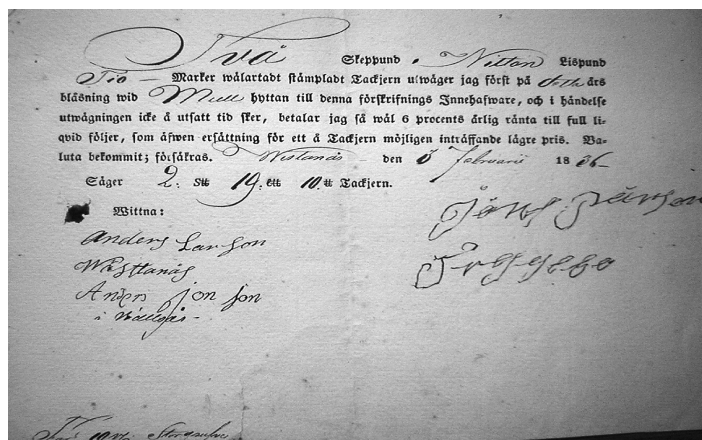 Två Skeppund, Nittan Lispund
Tio — Marker wälartadt stämpladt Tackjern utwäger jag först på detta års
bläsning wid hyttan till denna förskrifnings Innehafware, och i händelse
utwägningen icke å utsatt tid sker, betalar jag så wäl 6 procents årlig ränta till full li-
qvid följer, som äfwen ersättning för ett å Tackjern möjligen inträffande lägre pris. Wa-
luta bekommit; försäkras. Westanås den 5 februarii 1836
Säger 2: Stt 19: ett 10: tt Tackjern.
Wittna:
Anders Larson
Wästtanås
Anders jon son
i